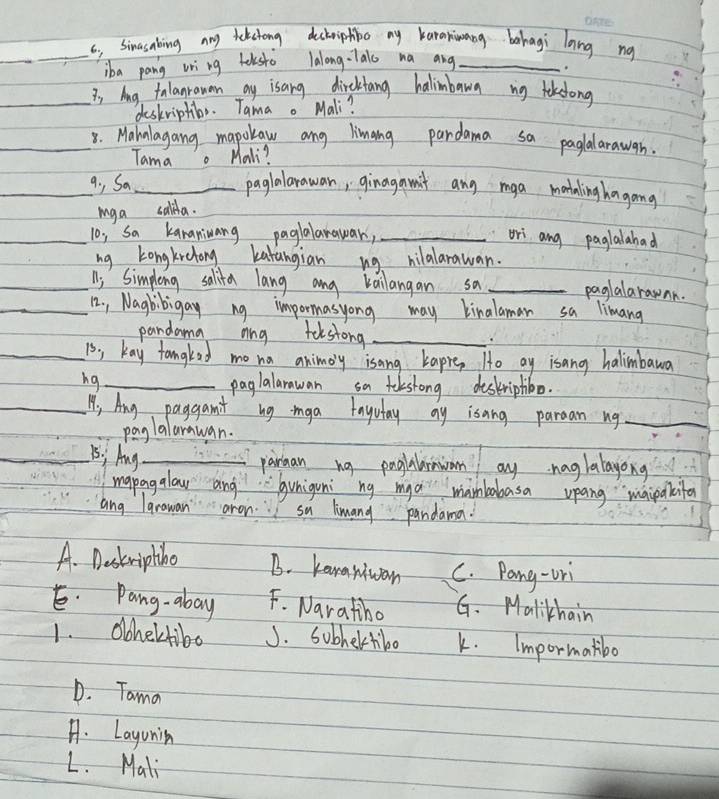 DATE
______6., Sinasabing ang tekstong deskriptibo ay karaniwang bahagi lang ng
iba pang uri ng teksto lalong-lalo na ang ______.
______7., Ang talanrawan ay isang direktang halimbawa ng tekstong
deskriptibo. Tama o Mali?
______8. Mahalagang mapukaw ang limang pandama sa paglalarawan.
Tama o Mali?
______9., Sa ______ paglalarawan, ginagamit ang mga matalinghagang
mga salita.
______10., Sa karaniwang paglalarawan, ______ uri ang paglalahad
ng kongkretong katangian ng nilalarawan.
______11., Simpleng salita lang ang kailangan sa ______ paglalarawan.
______12., Nagbibigay ng impormasyong may kinalaman sa limang
pandama ang tekstong ______.
______13., Kay tangkad mo na animo'y isang kapre. Ito ay isang halimbawa
ng ______ paglalarawan sa tekstong deskriptibo.
______14., Ang paggamit ng mga tayutay ay isang paraan ng ______
paglalarawan.
______15., Ang ______ paraan ng paglalarawan ay naglalayong
mapagalaw ang guniguni ng mga mambabasa upang maipakita
ang larawan aron sa limang pandama.
A. Deskriptibo B. Karaniwan C. Pang-uri
E. Pang-abay F. Naratibo G. Malikhain
I. Obhektibo J. Subhektibo K. Impormatibo
D. Tama
H. Layunin
L. Mali